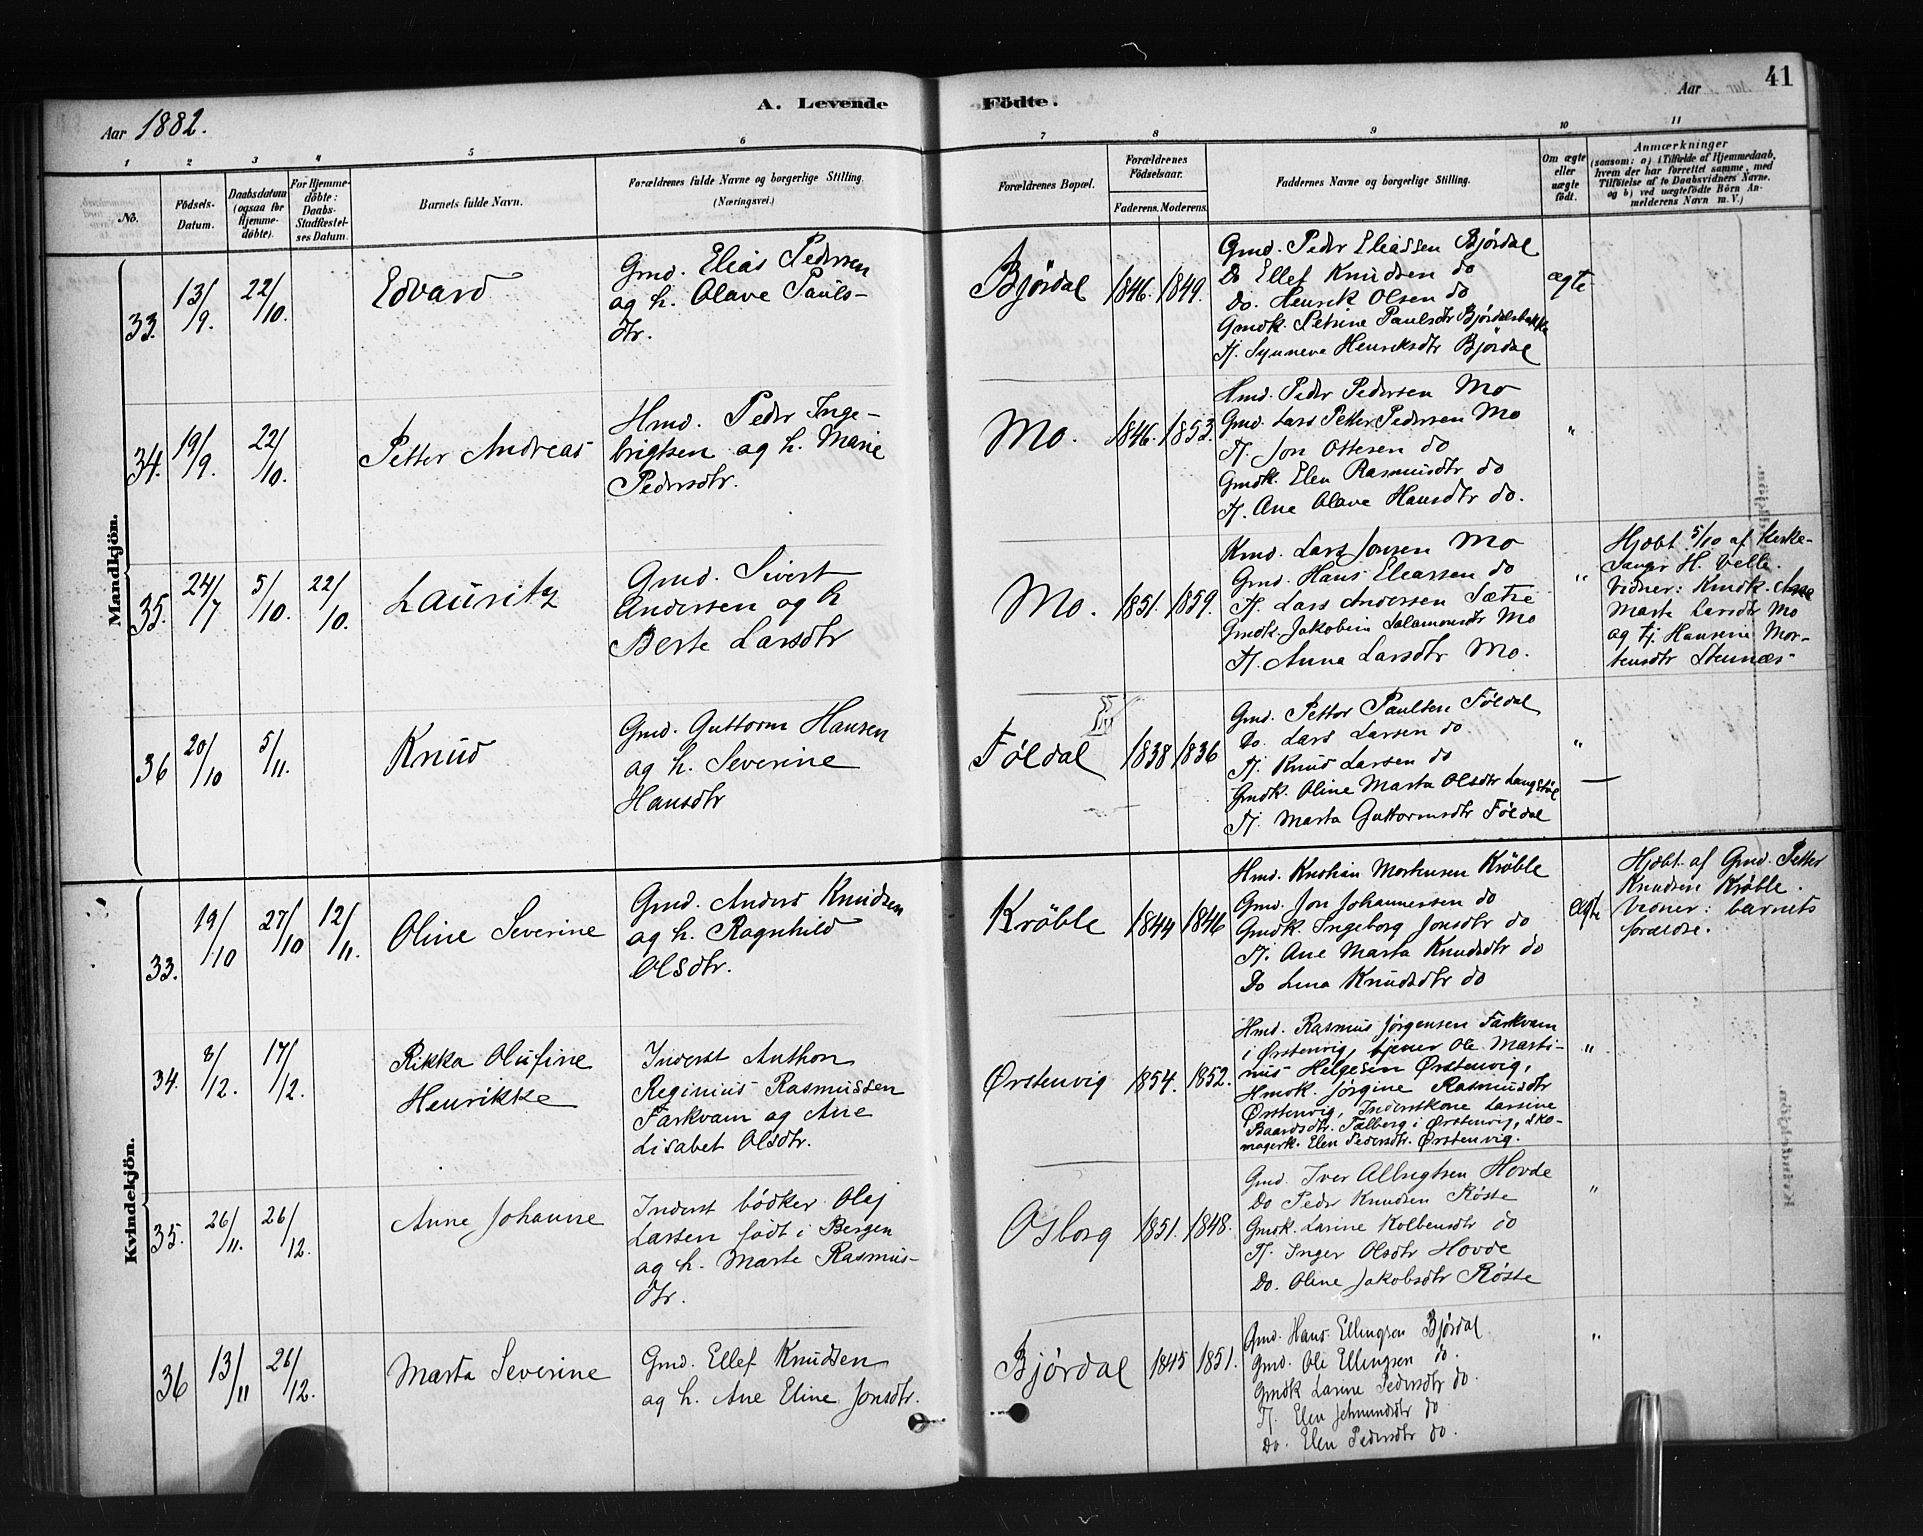 41
Aar 1882.
A. Levende Födte.
Aar
1 2 3 4 5 6 7 8 9 10 11
No.
Födsels-
Datum.
Daabsdatum
(ogsaa for
Hjemme-
döbte).
For Hjemme-
döbte:
Daabs-
Stadfæstel-
ses Datum.
Barnets fulde Navn.
Forældrenes fulde Navne og borgerlige Stilling.
(Næringsvei.)
Forældrenes Bopæl.
Forældrenes
Födselsaar.
Faderens. Moderens.
Faddernes Navne og borgerlige Stilling.
Om ægte
eller
uægte
födt.
Anmærkninger
(saasom: a) i Tilfælde af Hjemmedaab,
hvem der har forrettet samme, med
Tilföielse af to Daabsvidners Navne,
og b) ved uægtefödte Börn An-
melderens Navn m. V.)
Mandkjön.
33. 13/9. 22/10. Edvard
Gmd. Elias Pedersen
og h. Olave Pauls-
dtr.
Bjørdal 1846. 1849.
Gmd. Peder Eliassen Bjørdal
Do Ellef Knudsen do
Do. Henrik Olsen do
Gmdk. Petrine Paulsdtr Bjørdalsbakke
Tj. Synneve Henriksdtr Bjørdal
ægte
34. 19/9. 22/10. Petter Andreas
Hmd. Peder Inge-
brigtsen og h. Marie
Pedersdtr.
Mo. 1846. 1853.
Hmd. Peder Pedersen Mo
Gmd. Lars Petter Pedersen Mo
Tj. Jon Ottesen do
Gmdk. Elen Rasmusdtr do
Tj. Ane Olave Hansdtr do.
"
35. 24/7 5/10. 22/10. Lauritz
Gmd. Sivert
Andersen og h
Berte Larsdtr
Mo. 1851. 1859.
Kmd. Lars Jonsen Mo
Gmd. Hans Eleassen do
Tj. Lars Andersen Sætre
Gmdk. Jakobine Salamonsdtr Mo
Tj. Anna Larsdtr Mo.
"
Hjdbt. 5/10 af Kirke-
sanger H. Velle.
Vidner: Kmdk. Anne
Marte Larsdtr Mo
og tj. Hansine Mor-
tensdtr Stennes
36 20/10 5/11. Knud
Gmd. Guttorm Hansen
og h. Severine
Hansdtr
Føldal 1838 1836
Gmd. Petter Paulsen Føldal
Do. Lars Larsen do
Tj. Knud Larsen do
Gmdk. Oline Marta Olsdtr Langstøl
Tj. Marta Guttormsdtr Føldal
"
Kvindekjön.
33. 19/10 27/10 12/11. Oline Severine
Gmd. Anders Knudsen
og h. Ragnhild
Olsdtr.
Krøble 1844 1846
Hmd. Kristian Mortensen Krøble
Gmd. Jon Johannessen do
Gmdk. Ingeborg Jonsdtr do
Tj. Ane Marta Knudsdtr do
Do Lena Knudsdtr do
ægte
Hjdbt. af Gmd. Petter
Knudsen Krøble.
Vidner: barnets
forældre.
34. 8/12. 17/12. Rikka Olufine
Henrikke
Inderst Anthon
Reginius Rasmussen
Farkvam og Ane
Lisabet Olsdtr.
Ørstenvig 1854. 1852.
Hmd. Rasmus Jørgensen Farkvam
i Ørstenvig, tjener Ole Marti-
nus Helgesen Ørstenvig,
Hmdk. Jørgine Rasmusdtr
Ørstenvig, Inderstkone Larsine
Baardsdtr. Falberg i Ørstenvig, Sko-
magerk. Elen Pedersdtr. Ørstenvig.
"
35. 26/11. 26/12. Anne Johanne
Inderst bødker Olaj
Larsen født i Bergen
og h. Marte Rasmus-
dtr.
Osborg 1851. 1848.
Gmd. Iver Albregtsen Hovde
Do Peder Knudsen Røste
Gmdk. Larine Kolbensdtr do
Tj. Inger Olsdtr Hovde
Do. Oline Jakobsdtr Røste
"
36 13/11 26/12. Marta Severine
Gmd. Ellef Knudsen
og h. Ane Eline Jonsdtr.
Bjørdal 1845 1851.
Gmd. Hans Ellingsen Bjørdal
Gmd. Ole Ellingsen do.
Gmdk Larine Pedersdtr do.
Tj. Elen Jetmundsdtr do
Do. Elen Pedersdtr do.
"